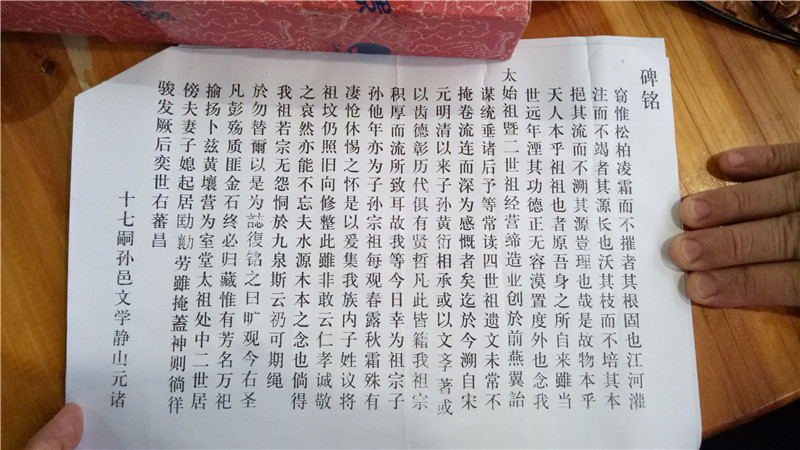 碑铭
窃惟松柏凌霜而不摧者其根固也江河灌
注而不竭者其源长也沃其枝而不培其本
挹其流而不溯其源豈理也哉是故物本乎
天人本乎祖祖也者原吾身之所自来雖当
世远年湮其功德正无容漠置度外也念我
太始祖暨二世祖经营缔造业创於前燕翼詒
谋统垂诸后予等常读四世祖遗文未常不
掩卷流连而深为感慨者矣迄於今溯自宋
元明清以来子孙黄衍相承或以文孝著或
以齿德彰历代俱有贤哲凡此皆籍我祖宗
积厚而流所致耳故我等今日幸为祖宗子
孙他年亦为子孙宗祖每观春露秋霜殊有
凄怆休惕之怀是以爰集我族内子姓议将
祖坟仍照旧向修整此雖非敢云仁孝诚敬
之哀然亦能不忘夫水源木本之念也倘得
我祖若宗无怨恫於九泉斯云礽可期绳
於勿替爾以是为誌復铭之曰旷观今右圣
凡彭殇质匪金石终必归藏惟有芳名万祀
揄扬卜兹黄壤营为室堂太祖处中二世居
傍夫妻子媳起居劻勷劳雖掩蓋神则徜徉
骏发厥后奕世右蕃昌
十七嗣孙邑文学静山元诸